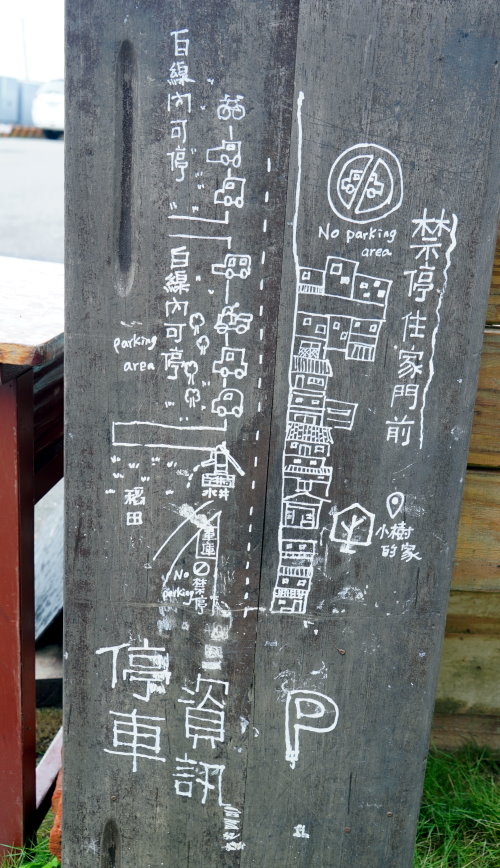 白線內可停
白線內可停
parking
area
稻
田
水井
車庫
No
parking
禁停
No parking
area
禁停住家門前
小樹
的家
停車
資訊
P